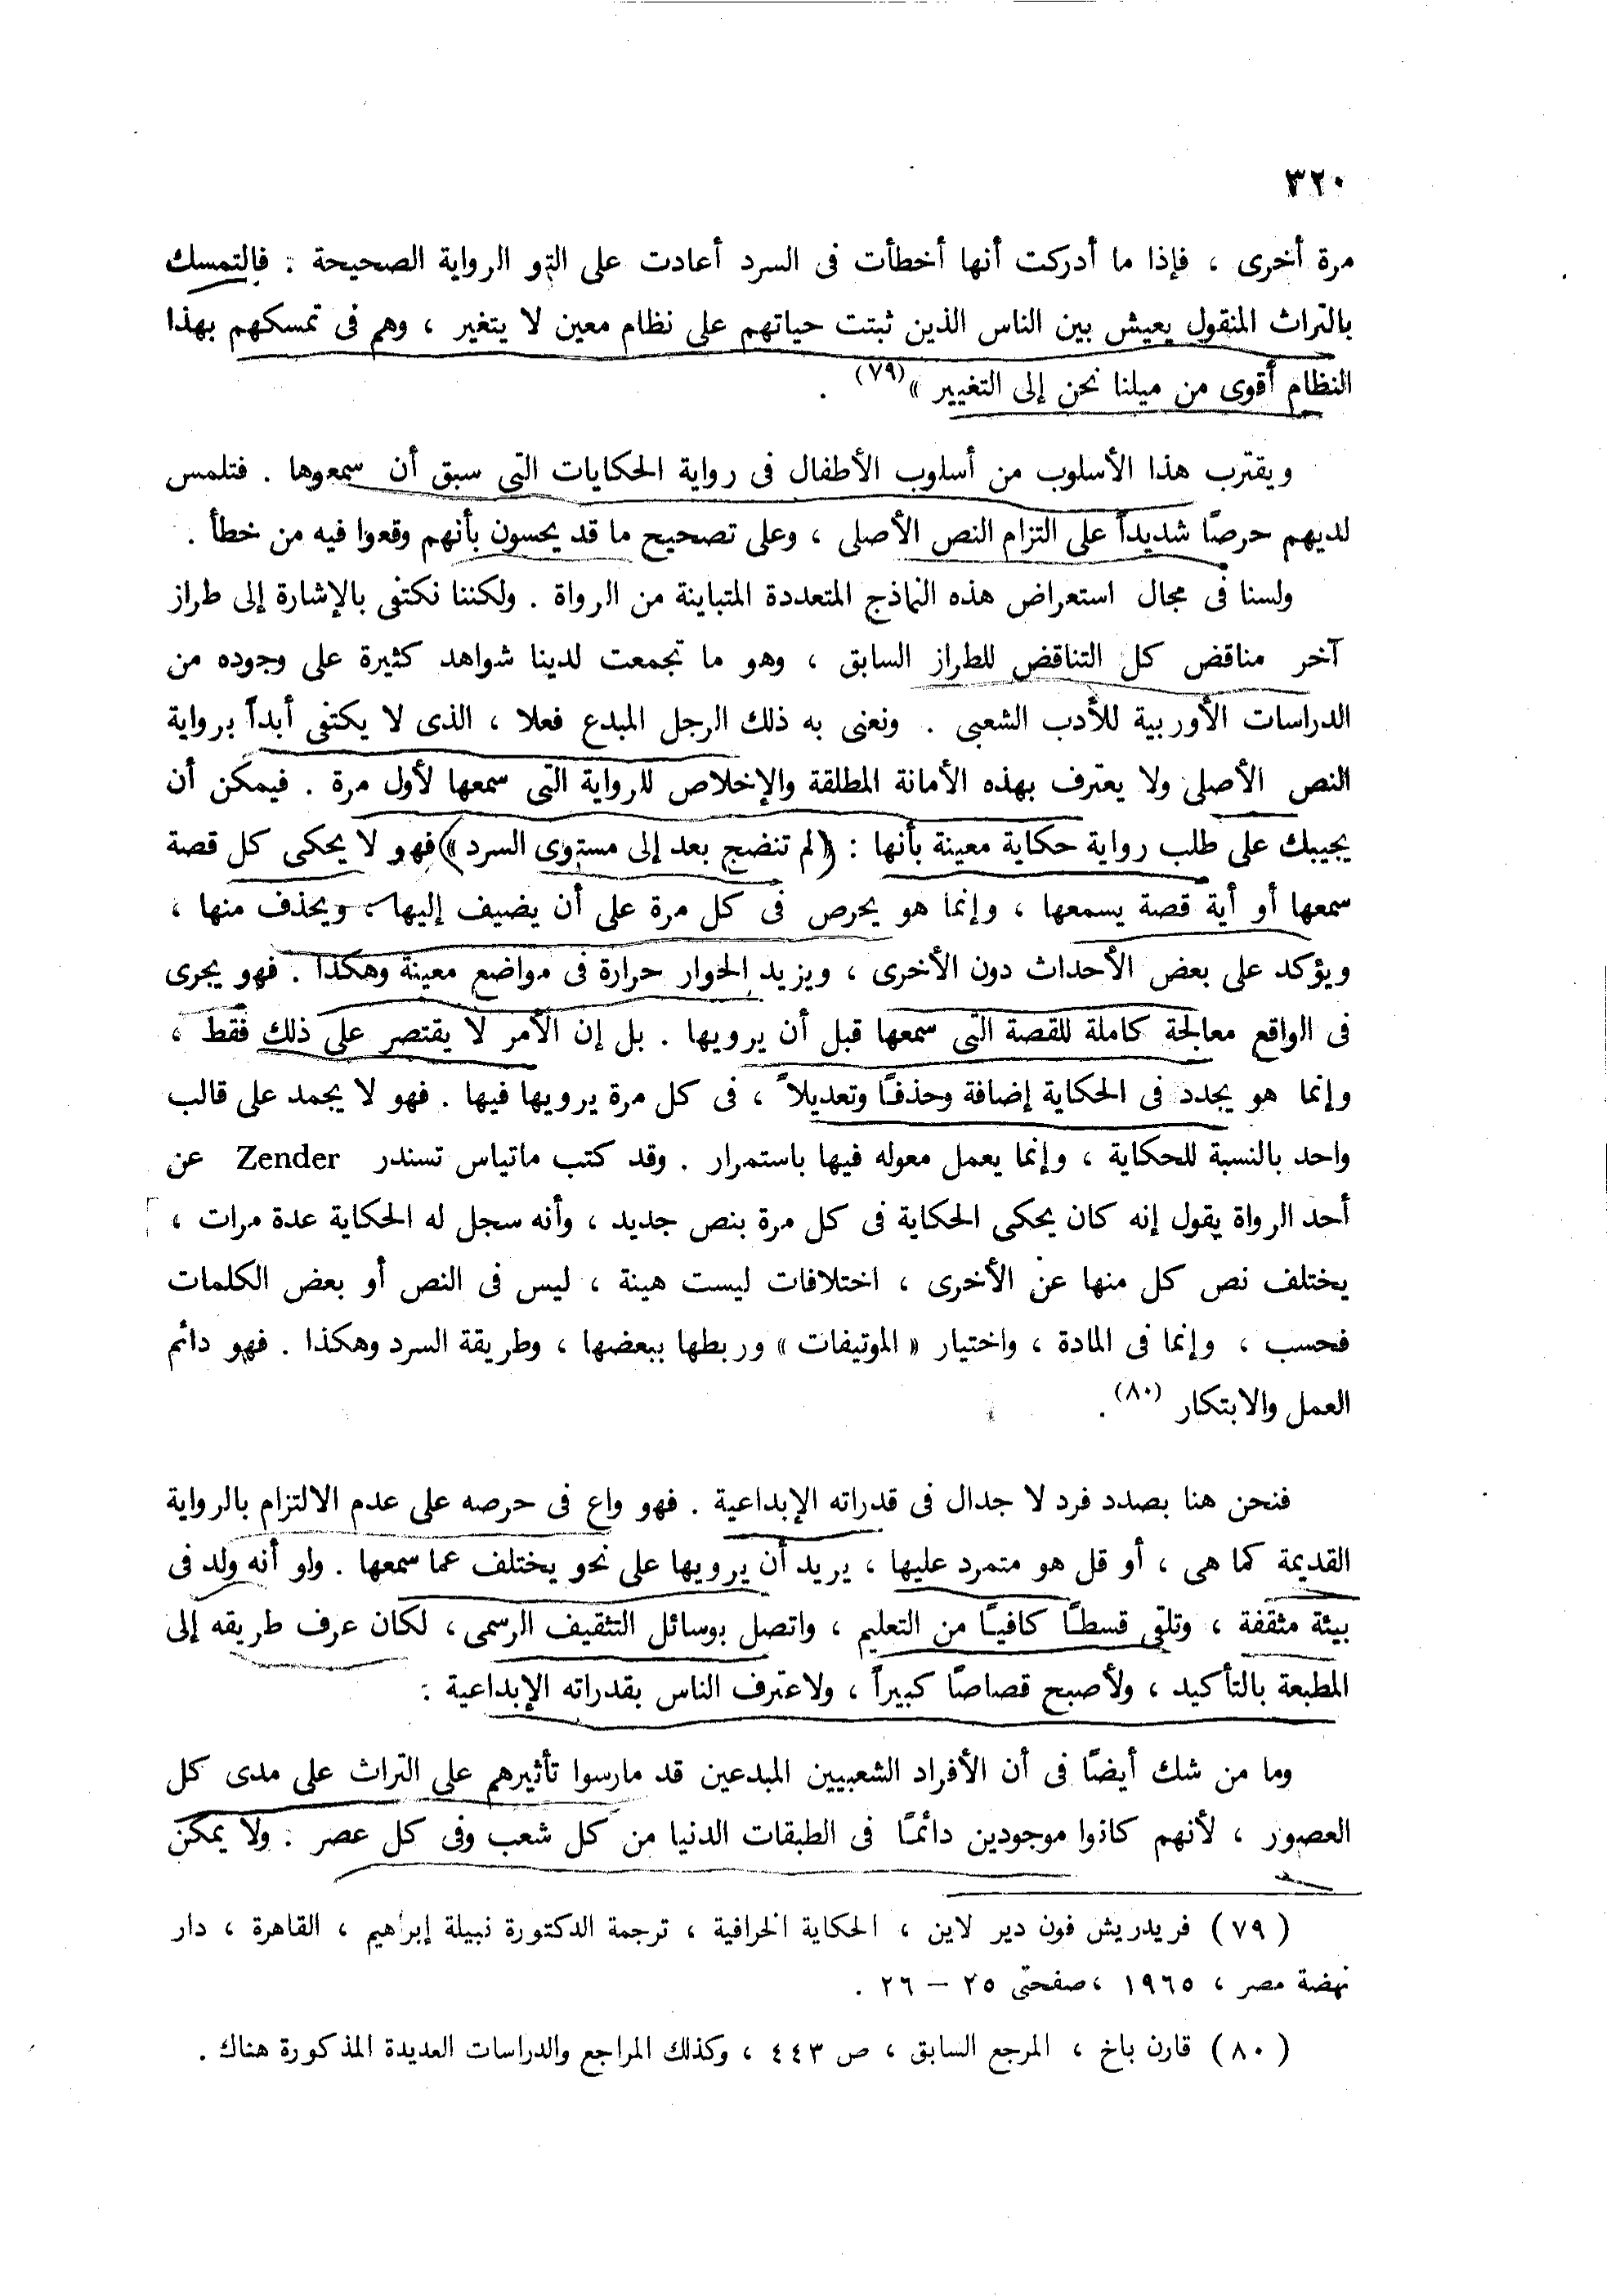 ٣٢٠
مرة أخرى ، فإذا ما أدركت أنها أخطأت فى السرد أعادت على التو الرواية الصحيحة . فالتمسك
بالتراث المنقول يعيش بين الناس الذين ثبتت حياتهم على نظام معين لا يتغير ، وهم فى تمسكهم بهذا
النظام أقوى من ميلنا نحن إلى التغيير » (٧٩) .
ويقترب هذا الأسلوب من أسلوب الأطفال فى رواية الحكايات التى سبق أن سمعوها . فتلمس
لديهم حرصًا شديداً على التزام النص الأصلى ، وعلى تصحيح ما قد يحسون بأنهم وقعوا فيه من خطأ .
ولسنا فى مجال استعراض هذه النماذج المتعددة المتباينة من الرواة . ولكننا نكتفى بالإشارة إلى طراز
آخر مناقض كل التناقض للطراز السابق ، وهو ما تجمعت لدينا شواهد كثيرة على وجوده من
الدراسات الأوربية للأدب الشعبى . ونعنى به ذلك الرجل المبدع فعلا ، الذى لا يكتفى أبداً برواية
النص الأصلى ولا يعترف بهذه الأمانة المطلقة والإخلاص للرواية التى سمعها لأول مرة . فيمكن أن
يجيبك على طلب رواية حكاية معينة بأنها : « لم تنضج بعد إلى مستوى السرد » فهو لا يحكى كل قصة
سمعها أو أية قصة يسمعها ، وإنما هو يحرص فى كل مرة على أن يضيف إليها ، ويحذف منها ،
ويؤكد على بعض الأحداث دون الأخرى ، ويزيد الحوار حرارة فى مواضع معينة وهكذا . فهو يجرى
فى الواقع معالجة كاملة للقصة التى سمعها قبل أن يرويها . بل إن الأمر لا يقتصر على ذلك فقط ،
وإنما هو يجدد فى الحكاية إضافة وحذفًا وتعديلاً ، فى كل مرة يرويها فيها . فهو لا يجمد على قالب
واحد بالنسبة للحكاية ، وإنما يعمل معوله فيها باستمرار . وقد كتب ماتياس تسندر Zender عن
أحد الرواة يقول إنه كان يحكى الحكاية فى كل مرة بنص جديد ، وأنه سجل له الحكاية عدة مرات ،
يختلف نص كل منها عن الأخرى ، اختلافات ليست هينة ، ليس فى النص أو بعض الكلمات
فحسب ، وإنما فى المادة ، واختيار « الموتيفات » وربطها ببعضها ، وطريقة السرد وهكذا . فهو دائم
العمل والابتكار (٨٠) .
فنحن هنا بصدد فرد لا جدال فى قدراته الإبداعية . فهو واع فى حرصه على عدم الالتزام بالرواية
القديمة كما هى ، أو قل هو متمرد عليها ، يريد أن يرويها على نحو يختلف عما سمعها . ولو أنه ولد فى
بيئة مثقفة ، وتلقى قسطًا كافيًا من التعليم ، واتصل بوسائل التثقيف الرسمى ، لكان عرف طريقه إلى
المطبعة بالتأكيد ، ولأصبح قصاصًا كبيراً ، ولاعترف الناس بقدراته الإبداعية .
وما من شك أيضًا فى أن الأفراد الشعبيين المبدعين قد مارسوا تأثيرهم على التراث على مدى كل
العصور ، لأنهم كانوا موجودين دائمًا فى الطبقات الدنيا من كل شعب وفى كل عصر . ولا يمكن
(٧٩) فريدريش فون دير لاين ، الحكاية الخرافية ، ترجمة الدكتورة نبيلة إبراهيم ، القاهرة ، دار
نهضة مصر ، ١٩٦٥ ، صفحتى ٢٥ – ٢٦ .
(٨٠) قارن باخ ، المرجع السابق ، ص ٤٤٣ ، وكذلك المراجع والدراسات العديدة المذكورة هناك .